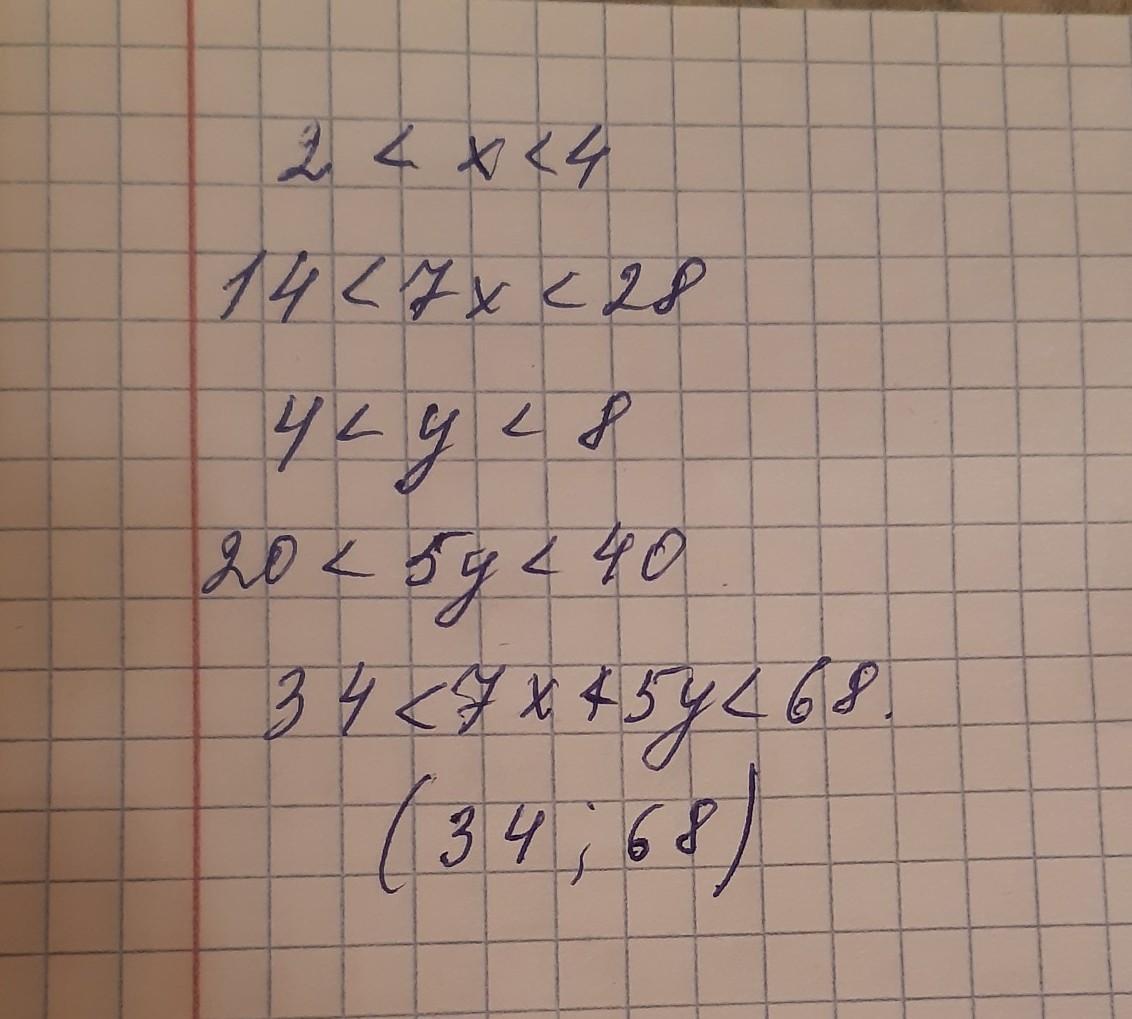 2 < x < 4
14 < 7x < 28
4 < y < 8
20 < 5y < 40
34 < 7x + 5y < 68.
(34 ; 68)